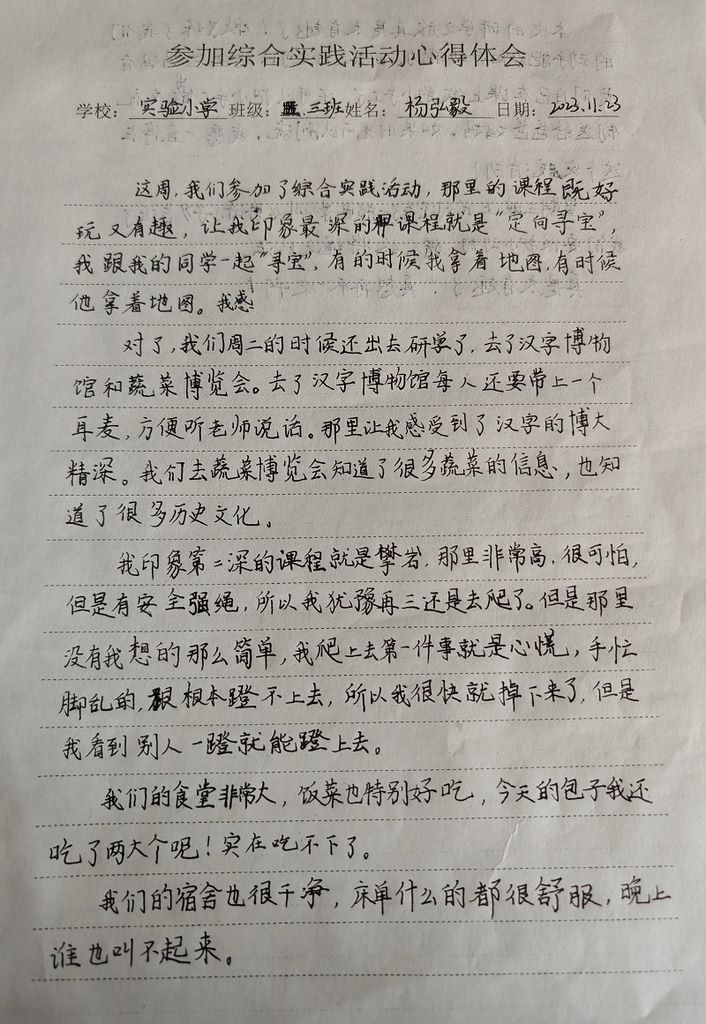 参加综合实践活动心得体会
学校：实验小学 班级：三班 姓名：杨弘毅 日期：2023.11.23
这周，我们参加了综合实践活动，那里的课程既好
玩又有趣，让我印象最深的课程就是“定向寻宝”，
我跟我的同学一起“寻宝”，有的时候我拿着地图，有时候
他拿着地图。我感
对了，我们周二的时候还出去研学了，去了汉字博物
馆和蔬菜博览会。去了汉字博物馆每人还要带上一个
耳麦，方便听老师说话。那里让我感受到了汉字的博大
精深。我们去蔬菜博览会知道了很多蔬菜的信息，也知
道了很多历史文化。
我印象第二深的课程就是攀岩，那里非常高，很可怕，
但是有安全强绳，所以我犹豫再三还是去爬了。但是那里
没有我想的那么简单，我爬上去第一件事就是心慌，手忙
脚乱的，根本蹬不上去，所以我很快就掉下来了，但是
我看到别人一蹬就能蹬上去。
我们的食堂非常大，饭菜也特别好吃，今天的包子我还
吃了两大个呢！实在吃不下了。
我们的宿舍也很干净，床单什么的都很舒服，晚上
谁也叫不起来。